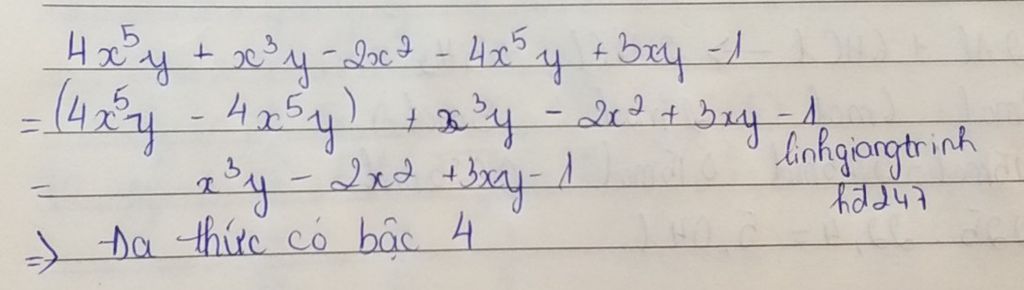 4x⁵y + x³y - 2x² - 4x⁵y + 3xy - 1
= (4x⁵y - 4x⁵y) + x³y - 2x² + 3xy - 1
= x³y - 2x² + 3xy - 1
linhgiangtrinh
hd247
=> Đa thức có bậc 4